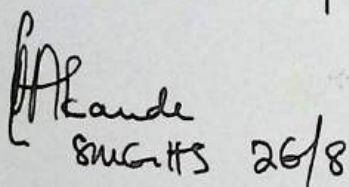 Akande
SMGHS 26/8